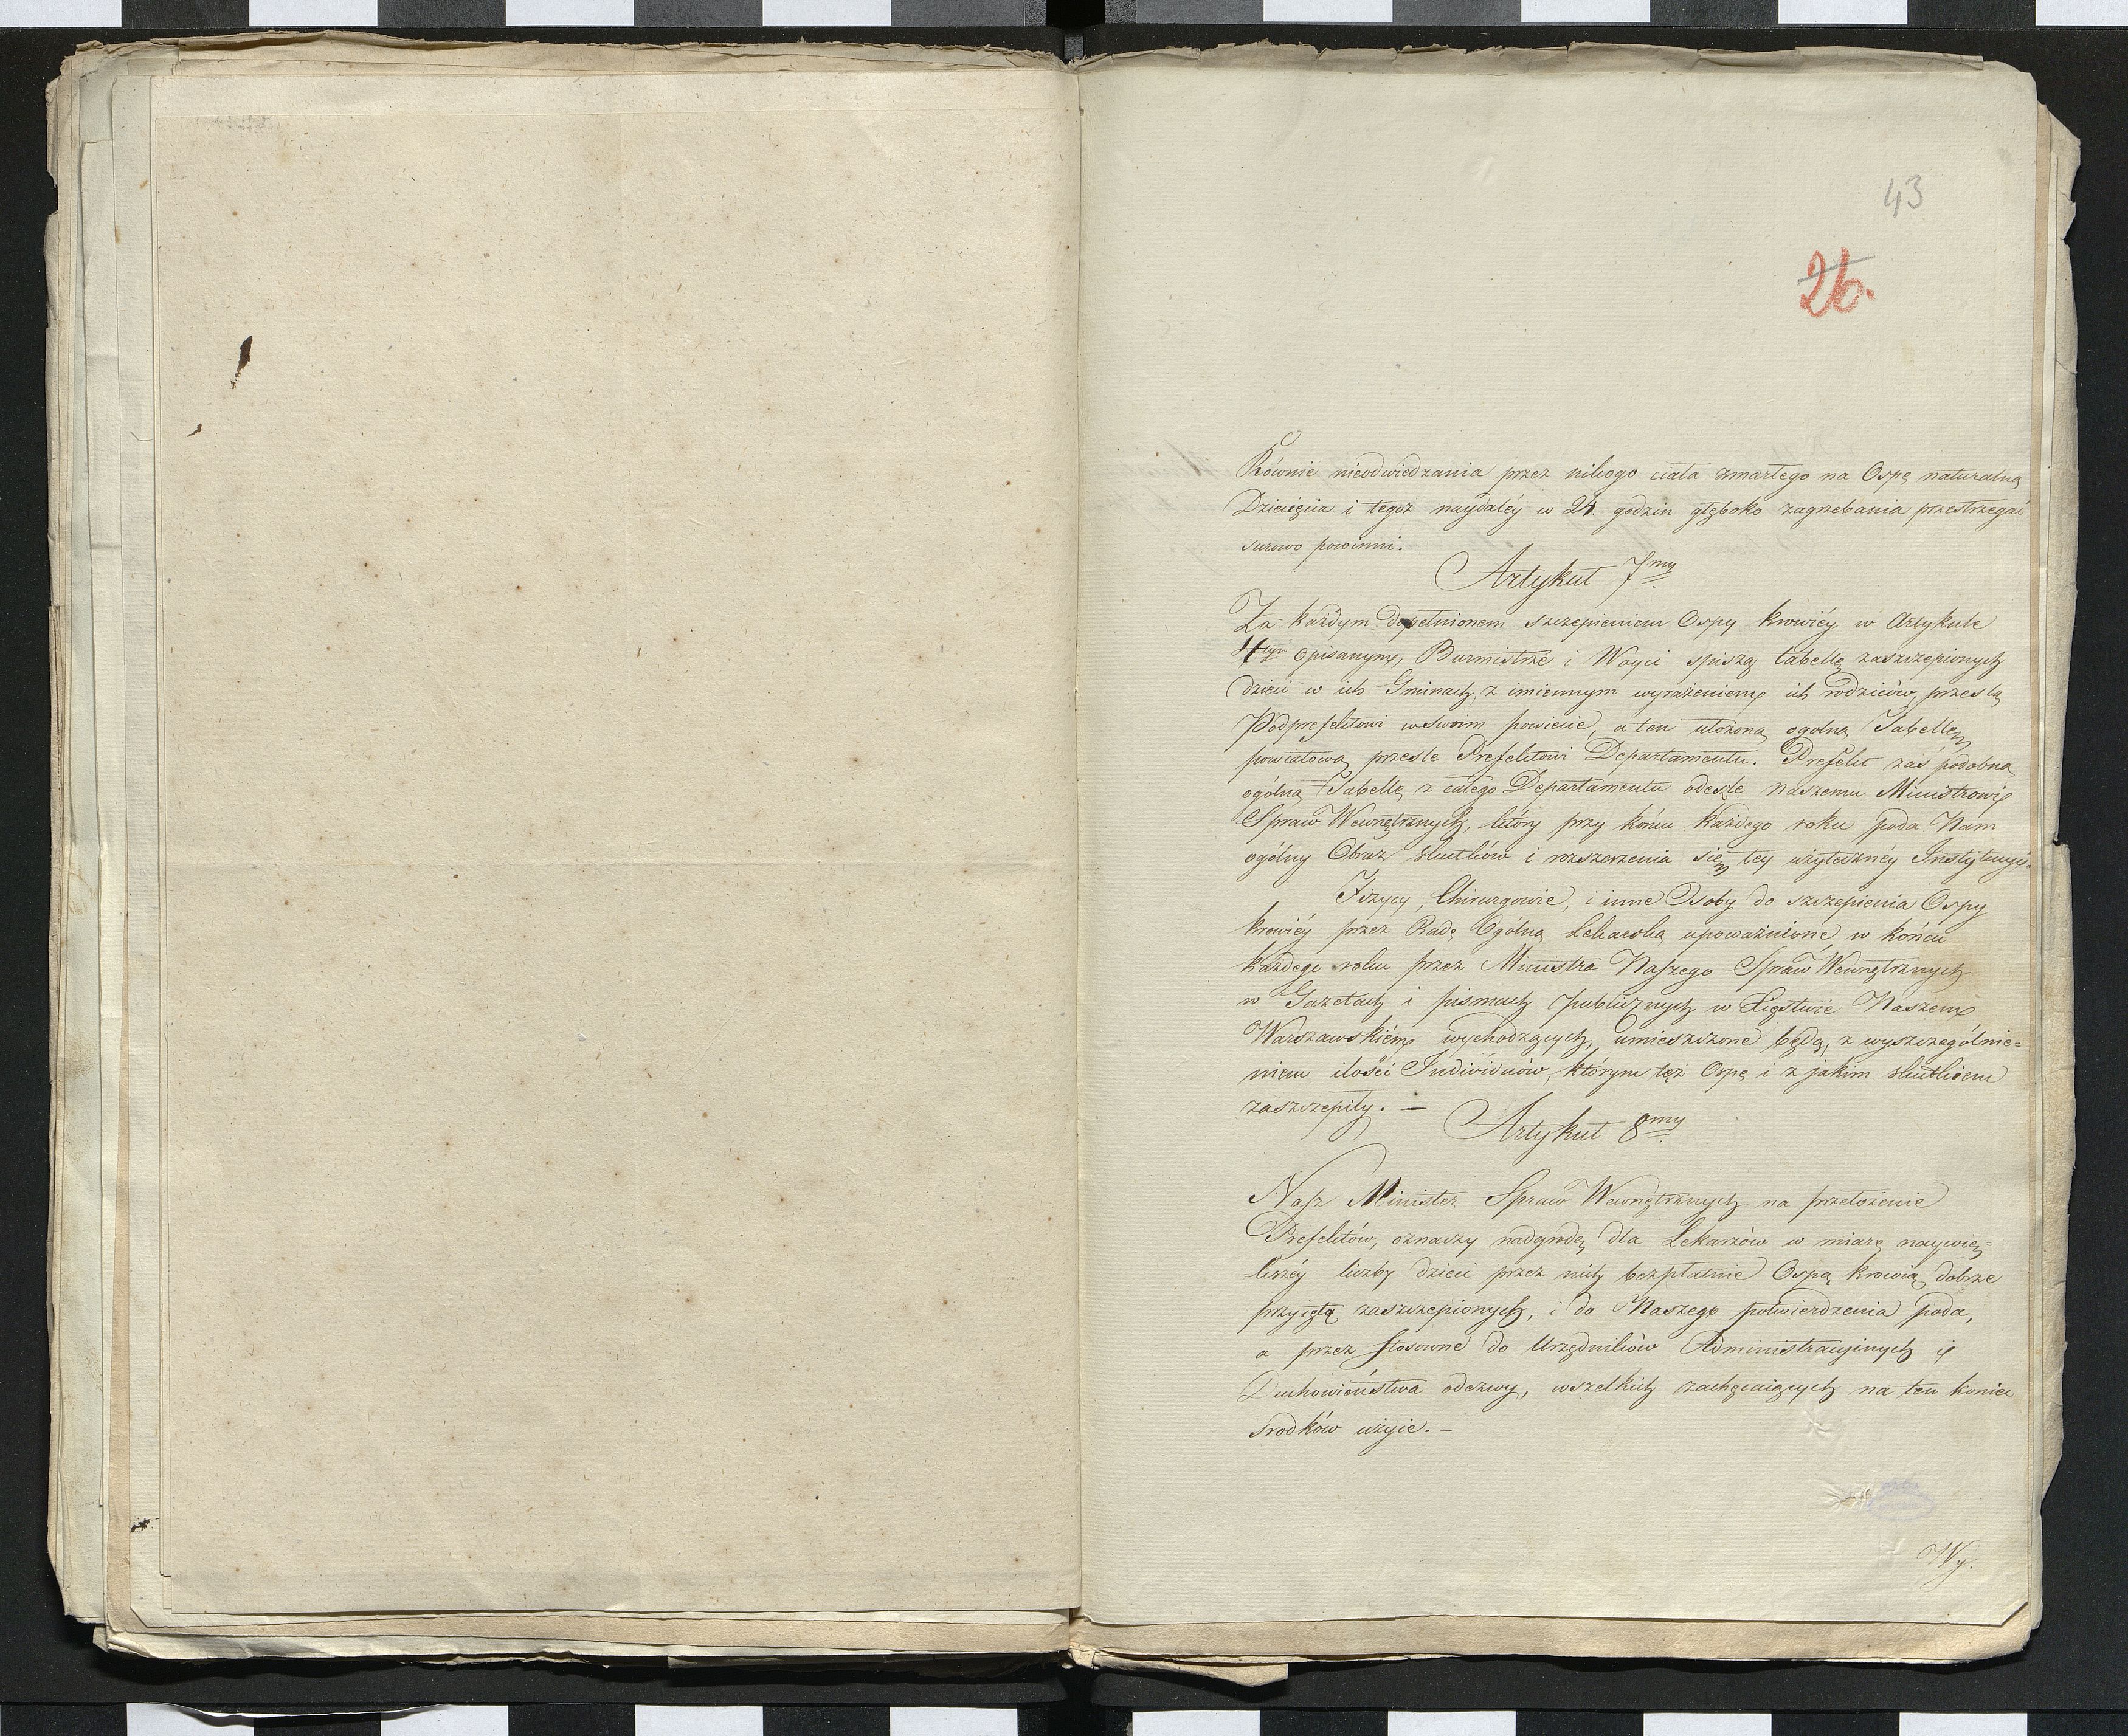 43
26.
Równie nieodwiedzania przez nikogo ciała zmarłego na Ospę naturalną
Dziecięcia i tegoż naydaléy w 24 godzin głęboko zagrzebania przestrzegać
surowo powinni.
Artykuł 7my
Za każdym dopełnionem szczepieniem Ospy krowiéy w Artykule
4tym opisanym, Burmistrze i Woyci spiszą tabellę zaszczepionych
dzieci w ich Gminach, z imiennym wyrażeniem ich rodziców, przeszlą
Podprefektowi w swoim powiecie, a ten ułożoną ogolną Tabellę
powiatową przeszle Prefektowi Departamentu. Prefekt zaś podobną
ogólną Tabellę z całego Departamentu odeszle Naszemu Ministrowi
Spraw Wewnętrznych, który przy końcu każdego roku poda Nam
ogólny Obraz skutków i rozszerzenia się tey użytecznéy Instytucyi.
Fizycy, Chirurgowie, i inne Osoby do szczepienia Ospy
krowiéy przez Radę Ogólną Lekarską upoważnione, w końcu
każdego roku przez Ministra Naszego Spraw Wewnętrznych
w Gazetach i pismach publicznych w Xięstwie Naszem
Warszawskiém wychodzących, umieszczone będą, z wyszczególnie=
niem ilości Individuów, którym też Ospę i z jakim skutkiem
zaszczepiły. —
Artykuł 8my
Nasz Minister Spraw Wewnętrznych na przełożenie
Prefektów, oznaczy nadgrodę dla Lekarzów w miarę naywięk=
kszéy liczby dzieci przez nich bezpłatnie Ospą krowią dobrze
przyiętą zaszczepionych, i do Naszego potwierdzenia poda,
a przez stosowne do Urzędników Administracyinych i
Duchowieństwa odezwy, wszelkich zachęcaiących na ten koniec
środków użyie. —
Wy.